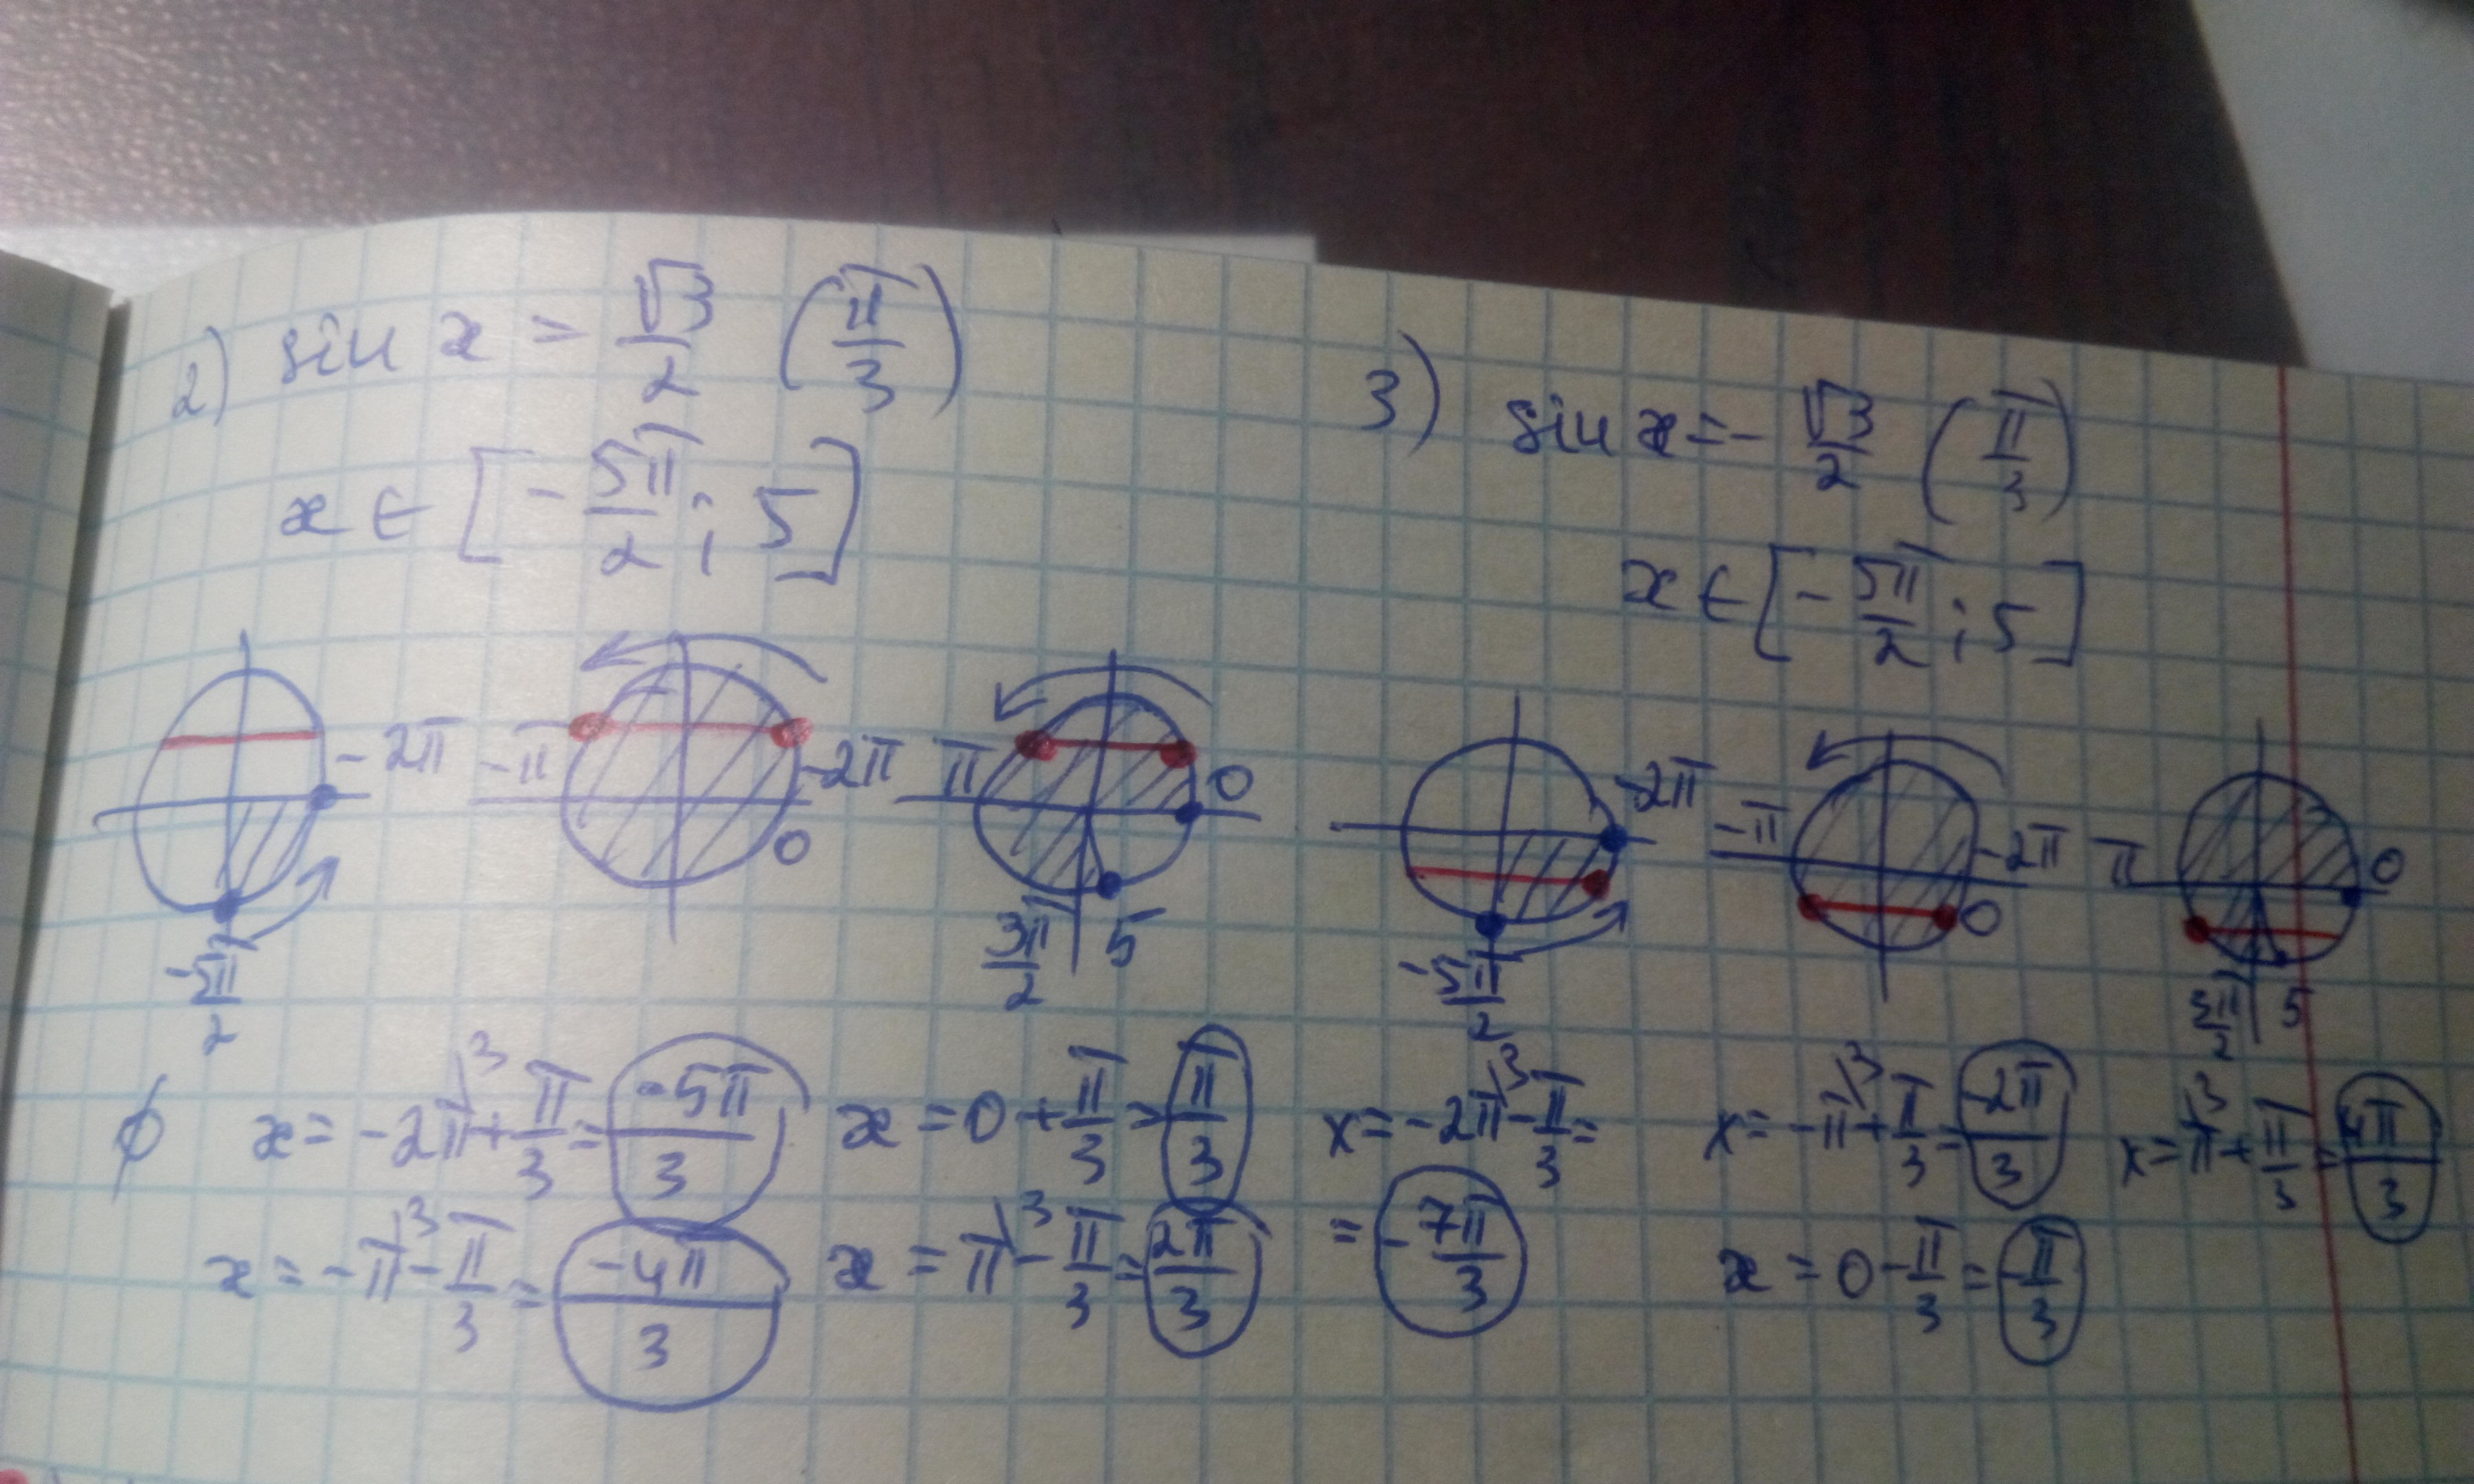 2) sin x = √3/2 (π/3)
x ∈ [-5π/2; 5]
-2π
-5π/2
-π -2π
0
π 0
3π/2 5
∅ x = -2π\³ + π/3 = -5π/3
x = -π\³ - π/3 = -4π/3
x = 0 + π/3 = π/3
x = π\³ - π/3 = 2π/3
3) sin x = - √3/2 (π/3)
x ∈ [-5π/2; 5]
-2π
-5π/2
-π -2π
0
π 0
3π/2 5
x = -2π\³ - π/3 =
= -7π/3
x = -π\³ + π/3 = -2π/3
x = 0 - π/3 = -π/3
x = π\³ + π/3 = 4π/3